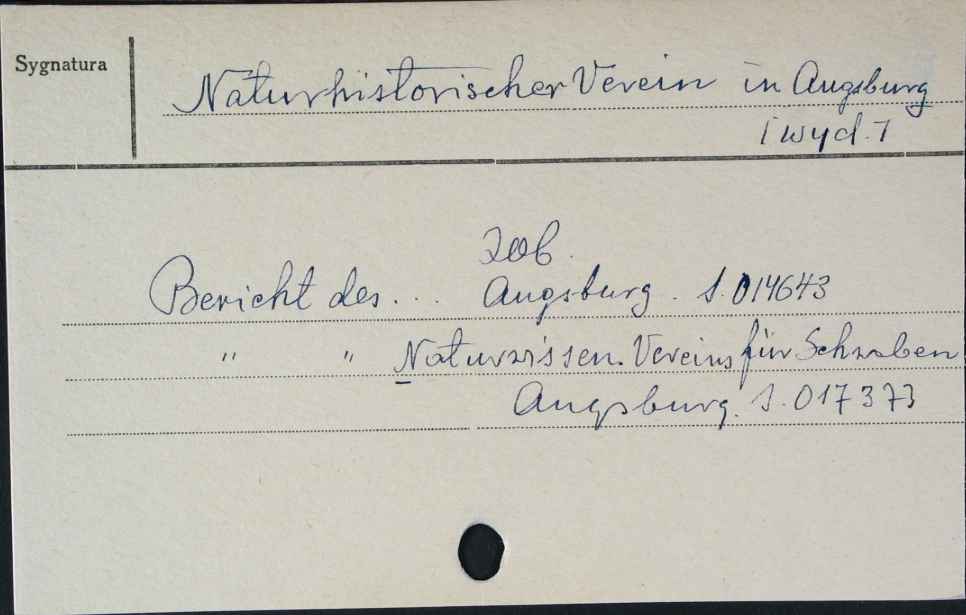 Sygnatura
Naturhistorischer Verein in Augsburg
[wyd.]
zob.
Bericht des... Augsburg. S.014643
" " Naturwissen. Vereins für Schwaben
Augsburg. S.017373